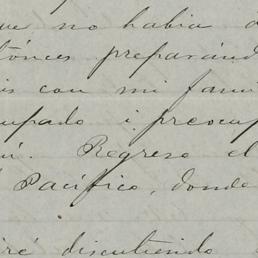 que no habia a
tónces preparánd
is con mi fami
upado i preocup
ú. Regreso el
Pacífico, donde
iré discutiendo